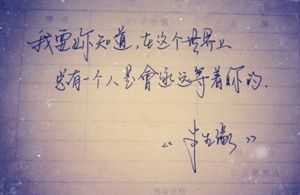 我要你知道，在这个世界上
总有一个人是會永远等着你的.
《半生缘》